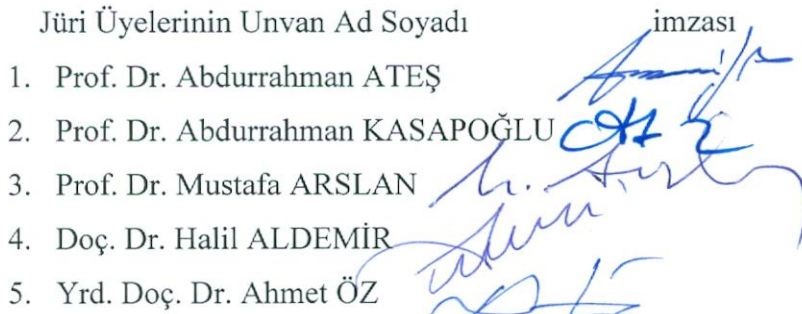 Jüri Üyelerinin Unvan Ad Soyadı imzası
1. Prof. Dr. Abdurrahman ATEŞ
2. Prof. Dr. Abdurrahman KASAPOĞLU
3. Prof. Dr. Mustafa ARSLAN
4. Doç. Dr. Halil ALDEMİR
5. Yrd. Doç. Dr. Ahmet ÖZ